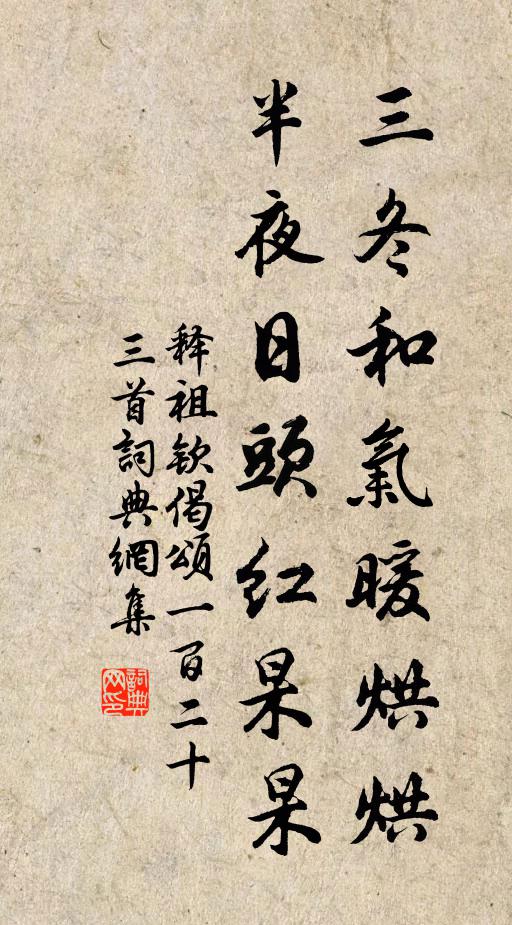 三冬和氣暖烘烘
半夜日頭紅杲杲
释祖欽偈頌一百二十
三首詞典網集
詞典网印